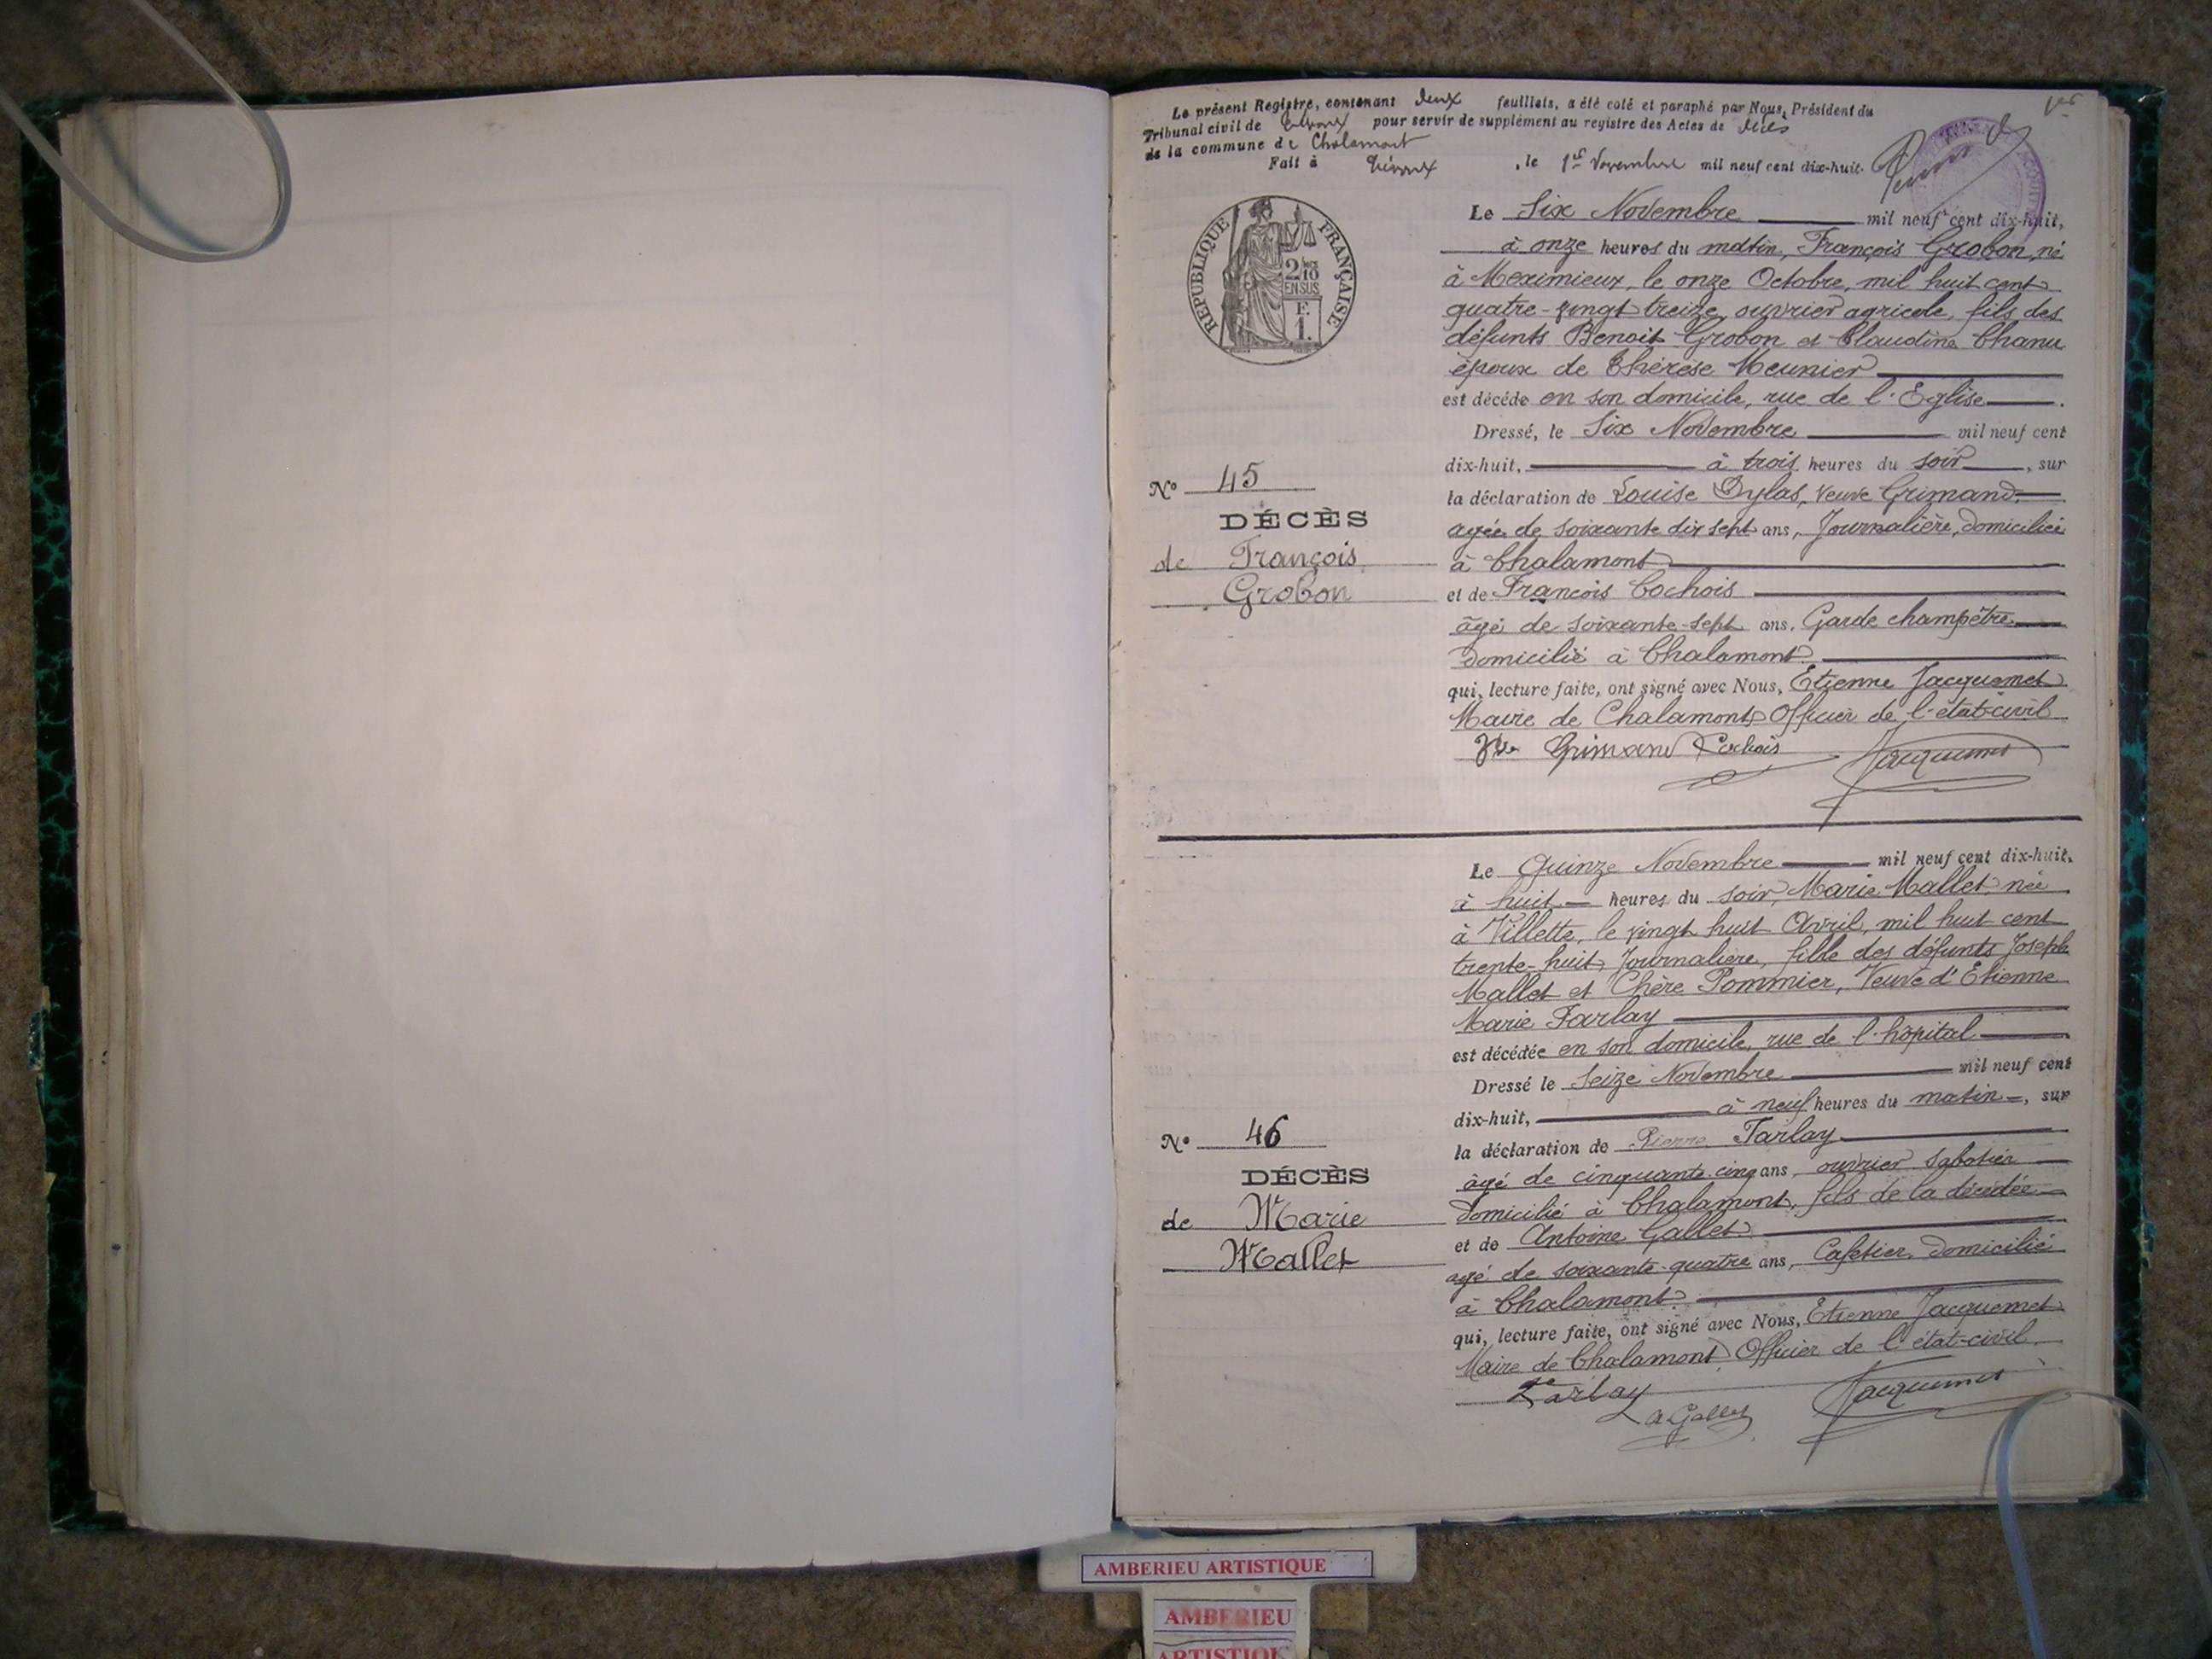 Le présent Registre, contenant deux feuillets, a été coté et paraphé par Nous, Président du
Tribunal civil de Trévoux pour servir de supplément au registre des Actes de décès
de la commune de Chalamont
Fait à Trévoux, le 1er Novembre mil neuf cent dix-huit.
1er
RÉPUBLIQUE FRANÇAISE
2/10
EN SUS
F.
1.
Le Six Novembre mil neuf cent dix-huit,
à onze heures du matin, François Grobon, né
à Meximieux, le onze Octobre, mil huit cent
quatre-vingt treize, ouvrier agricole, fils des
défunts Benoit Grobon et Claudine Chanu
époux de Thérèse Meunier
est décédé en son domicile, rue de l'Eglise.
Dressé, le Six Novembre mil neuf cent
dix-huit, à trois heures du soir, sur
la déclaration de Louise Dylas, veuve Grimand,
agée de soixante dix sept ans, Journalière, domiciliée
à Chalamont
et de François Cochois
âgé de soixante-sept ans, Garde champêtre
domicilié à Chalamont
qui, lecture faite, ont signé avec Nous, Etienne Jacquemet
Maire de Chalamont, Officier de l'état-civil
Vve Grimand Cochois Jacquemet
No 45
DÉCÈS
de François
Grobon
Le Quinze Novembre mil neuf cent dix-huit,
à huit heures du soir, Marie Mallet, née
à Villette, le vingt huit Avril, mil huit cent
trente-huit, Journalière, fille des défunts Joseph
Mallet et Chère Pommier, Veuve d'Etienne
Marie Tarlay
est décédée en son domicile, rue de l'hôpital
Dressé le Seize Novembre mil neuf cent
dix-huit, à neuf heures du matin, sur
la déclaration de Pierre Tarlay
âgé de cinquante-cinq ans, ouvrier sabotier
domicilié à Chalamont, fils de la décédée
et de Antoine Gallet
agé de soixante-quatre ans, Cafetier, domicilié
à Chalamont
qui, lecture faite, ont signé avec Nous, Etienne Jacquemet
Maire de Chalamont, Officier de l'état-civil.
Tarlay
A Gallet Jacquemet
No 46
DÉCÈS
de Marie
Mallet
AMBERIEU ARTISTIQUE
AMBERIEU
ARTISTIQUE